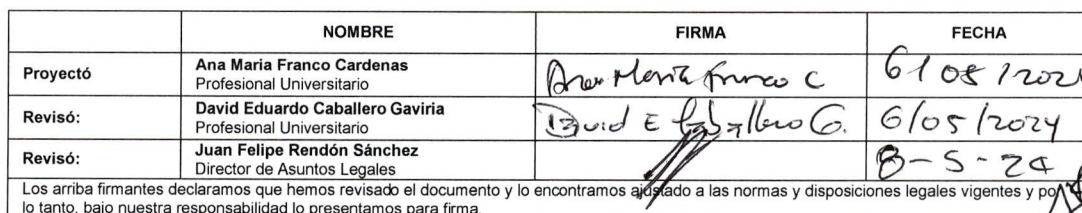 NOMBRE FIRMA FECHA
Proyectó Ana Maria Franco Cardenas Profesional Universitario Ana María Franco C 6/05/202
Revisó: David Eduardo Caballero Gaviria Profesional Universitario David E Caballero G. 6/05/2024
Revisó: Juan Felipe Rendón Sánchez Director de Asuntos Legales 8-5-24
Los arriba firmantes declaramos que hemos revisado el documento y lo encontramos ajustado a las normas y disposiciones legales vigentes y por
lo tanto, bajo nuestra responsabilidad lo presentamos para firma.